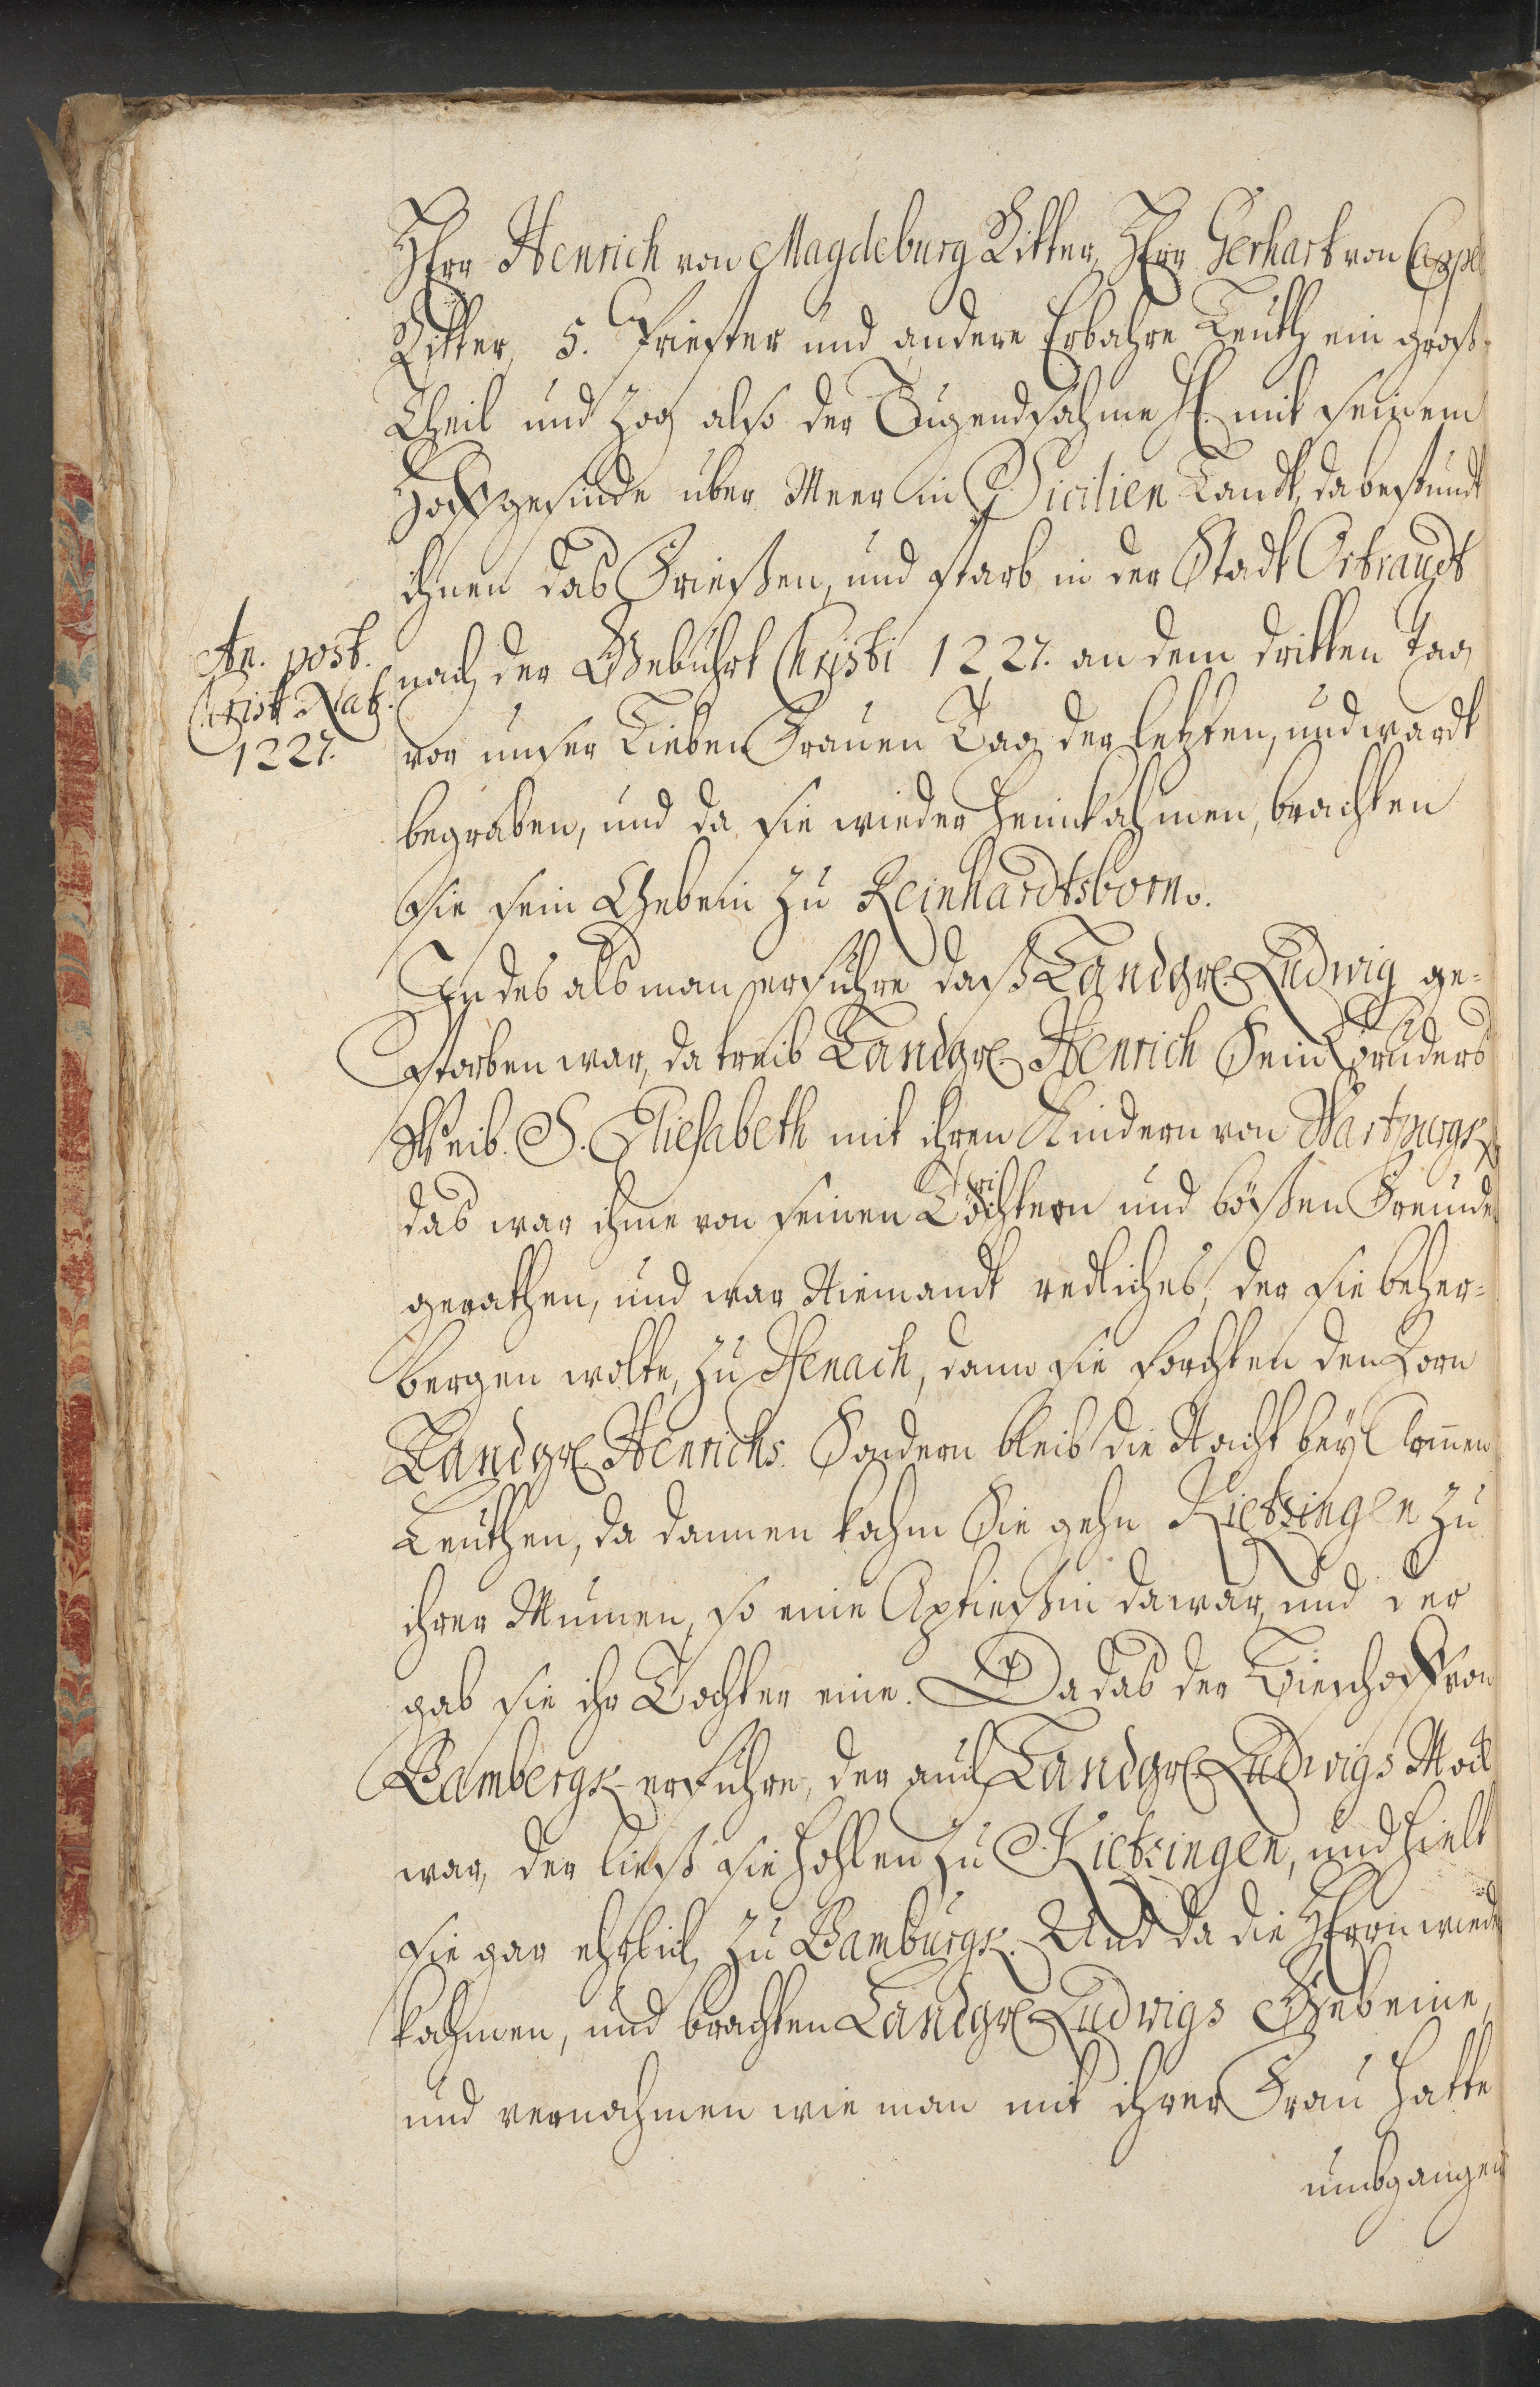 HErr Henrich von Magdeburg Ritter, HErr Gerhart von Cappel
Ritter, 5. Priester und andere Erbahre Leuth ein groß
Theil und zog also der Tugendsahme H. mit seinem
Hoffgesinde über Meer in Sicilien Landt, da bestundt
ihnen das Frießen, und starb in der Stadt Ortrandt
An. post.
Christ. Nat.
1227.
nach der Gebuhrt Christi 1227. an dem dritten Tag
vor unser Lieben Frauen Tag der letzten, und wardt
begraben, und da sie wieder heimkahmen, brachten
sie sein Gebein zu Reinhardtsborn.
In des als man erfuhre daß Landgr. Ludwig ge-
storben war, da treib Landgr. Henrich Sein Bruders
Weib. S. Eliesabeth mit ihren Kindern von Wartburgk,
das war ihme von seinen Töchtern und bößen Freunde
gerathen, und war Niemandt redliches, der sie beher-
bergen wolte, zu Isenach, dann sie forchten den Zorn
Landgr. Henrichs. Sondern bleib die Nacht bey Armen
Leuthen, da dannen kahm Sie gehn Kietzingen zu
ihrer Mumen, so eine Aptießin da war, und der
gab sie ihr Tochter eine. Da das der Bieschoff von
Bambergk erfuhre, der auch Landgr. Ludwigs
war, der ließ sie hohlen zu Kietzingen, und hielt
sie gar ehrlich zu Bamburgk. Und da die HErrn wieder
kahmen, und brachten Landgr. Ludwigs Gebeine,
und vernahmen wie man mit ihrer Frau hatte
umbgangen